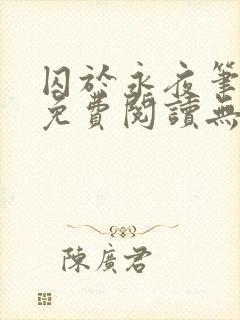 囚於永夜筆
免費閱讀無
陳廣君